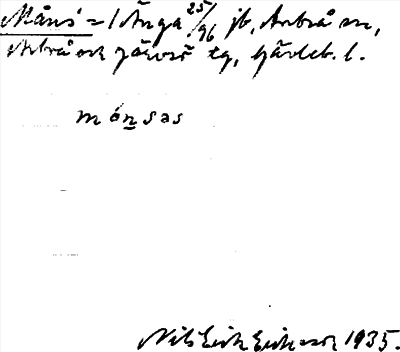 Måns = 1 Änga 25/96 jb, Arbrå sn,
Arbrå och Järvsö tg, Gävleb. l.
mónsas
Nils Erik Eriksson 1935.